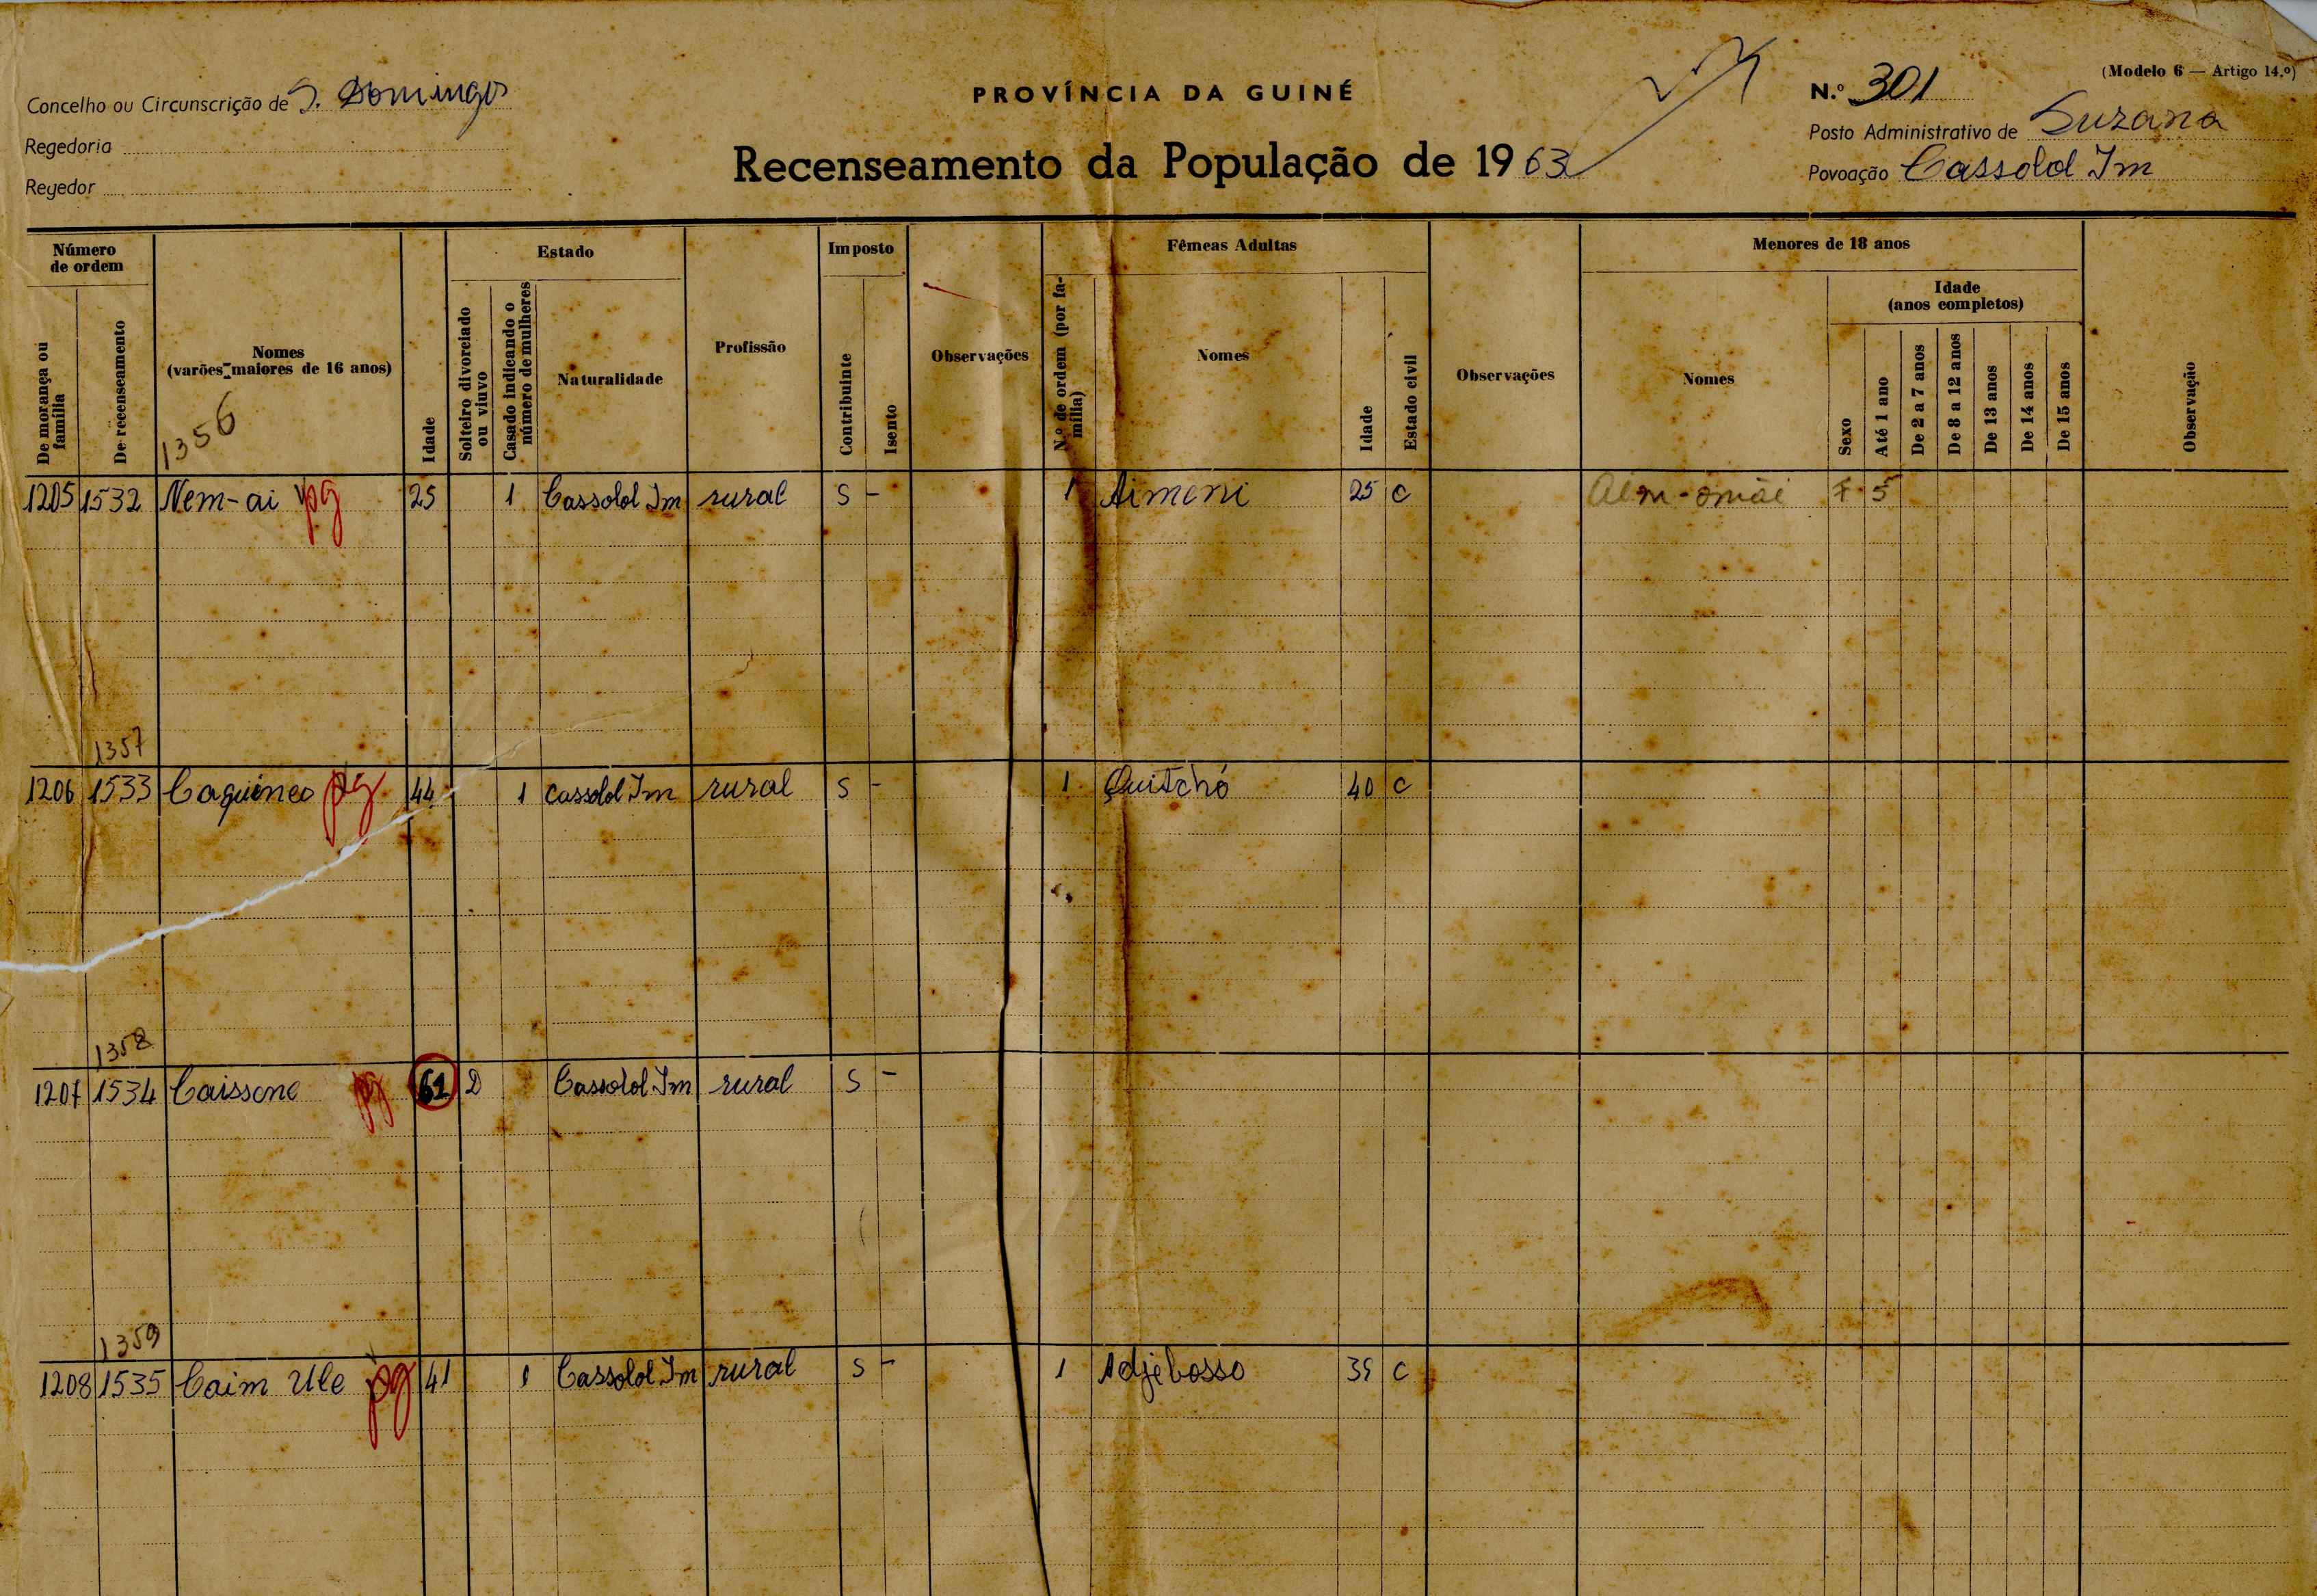 (Modelo 6 — Artigo 14.º)
Concelho ou Circunscrição de S. Domingos
PROVÍNCIA DA GUINÉ
N.º 301
Regedoria
Posto Administrativo de Suzana
Regedor
Recenseamento da População de 1963
Povoação Cassolol Im
Número de ordem
De morança ou família
De recenseamento
Nomes
(varões maiores de 16 anos)
1356
Idade
Estado
Solteiro divorciado ou viuvo
Casado indicando o número de mulheres
Naturalidade
Profissão
Imposto
Contribuinte
Isento
Observações
Fêmeas Adultas
N.º de ordem (por família)
Nomes
Idade
Estado civil
Observações
Menores de 18 anos
Nomes
Sexo
Idade
(anos completos)
Até 1 ano
De 2 a 7 anos
De 8 a 12 anos
De 13 anos
De 14 anos
De 15 anos
Observação
1205 1532 Nem-ai pg 25 1 Cassolol Im rural S - 1 Aimeni 25 C F 5
1357
1206 1533 pg 44 1 Cassolol Im rural S - 1 Quitchó 40 C
1358
1207 1534 pg 61 D Cassolol Im rural S -
1359
1208 1535 Caim Ule pg 41 1 Cassolol Im rural S - 1 Adjebosso 35 C